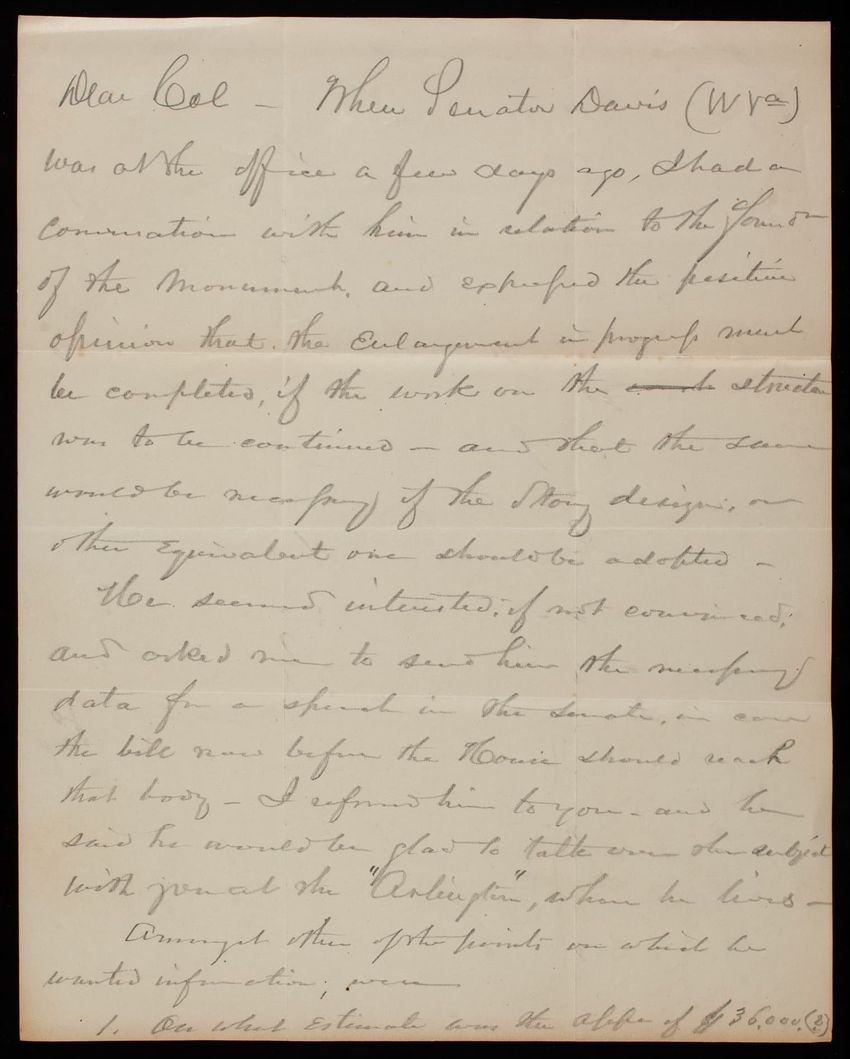 Dear Col — When Senator Davis (W Va)
was at the office a few days ago, I had a
conversation with him in relation to the found n
of the Monument, and expressed the positive
opinion that the Enlargement in progress must
be completed, if the work on the structure
was to be continued — and that the same
would be necessary if the Story design, or
other Equivalent one should be adopted —
He seemed interested, if not convinced;
and asked me to send him the necessary
data for a speech in the Senate, in case
the bill now before the House should reach
that body — I referred him to you — and he
said he would be glad to talk over the subject
with you at the "Arlington", where he lives —
Amongst other of the points on which he
wanted information, were
1. On what Estimate was the appn of $36,000. (?)